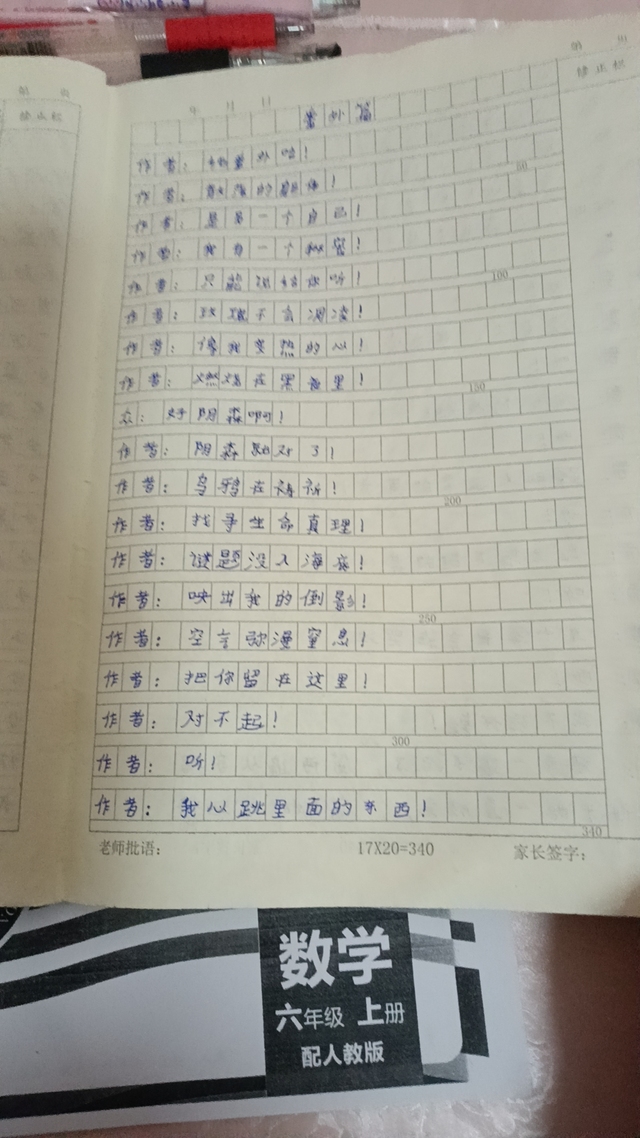 第 页
修正栏
第 页
修正栏
年 月 日
番外篇
作者：番外哈！
作者：的！
作者：是另一个自己！
作者：我有一个秘密！
作者：只能说给你听！
作者：玫瑰不会凋凌！
作者：像我炙热的心！
作者：燃烧在黑夜里！
众：好阴森啊！
作者：阴森就对了！
作者：乌鸦在祷祈！
作者：找寻生命真理！
作者：谜题没入海底！
作者：映出我的倒影！
作者：空言弥漫窒息！
作者：把你留在这里！
作者：对不起！
作者：听！
作者：我心跳里面的东西！
50
100
150
200
250
300
340
老师批语： 17X20=340 家长签字：
数学
六年级 上册
配人教版